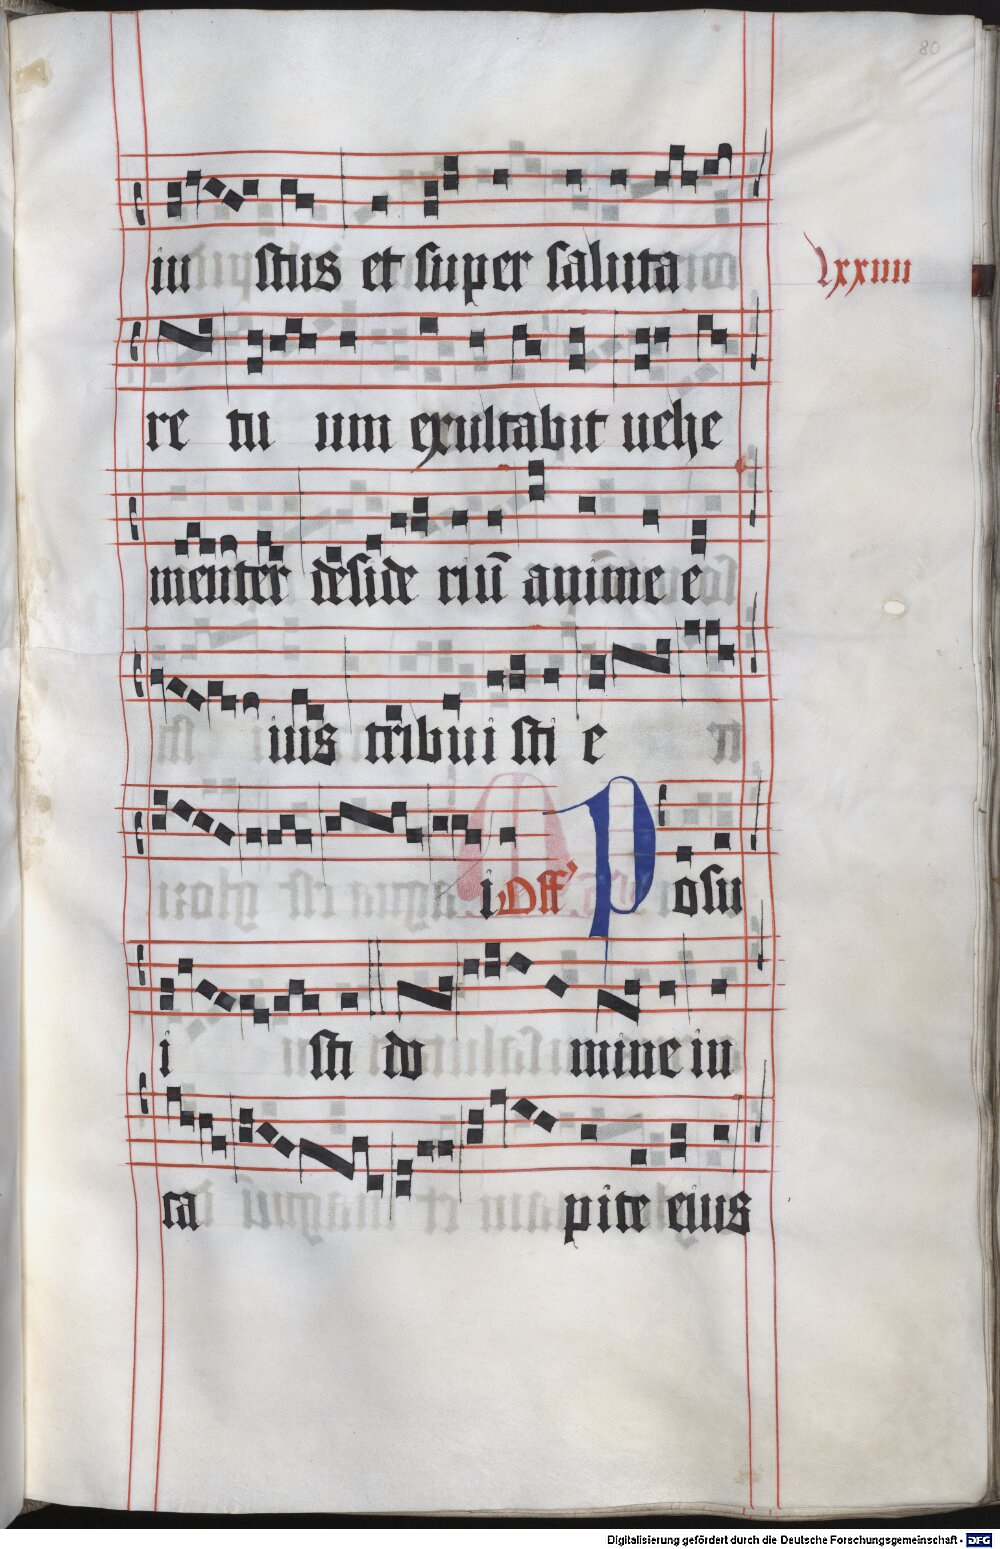 80
iu stus et super saluta
lxxiiii
re tu um exultabit uehe
menter deside riū anime e
ius tribui sti e
i Off' Posu
i sti do mine in
ca pite eius
Digitalisierung gefördert durch die Deutsche Forschungsgemeinschaft - DFG